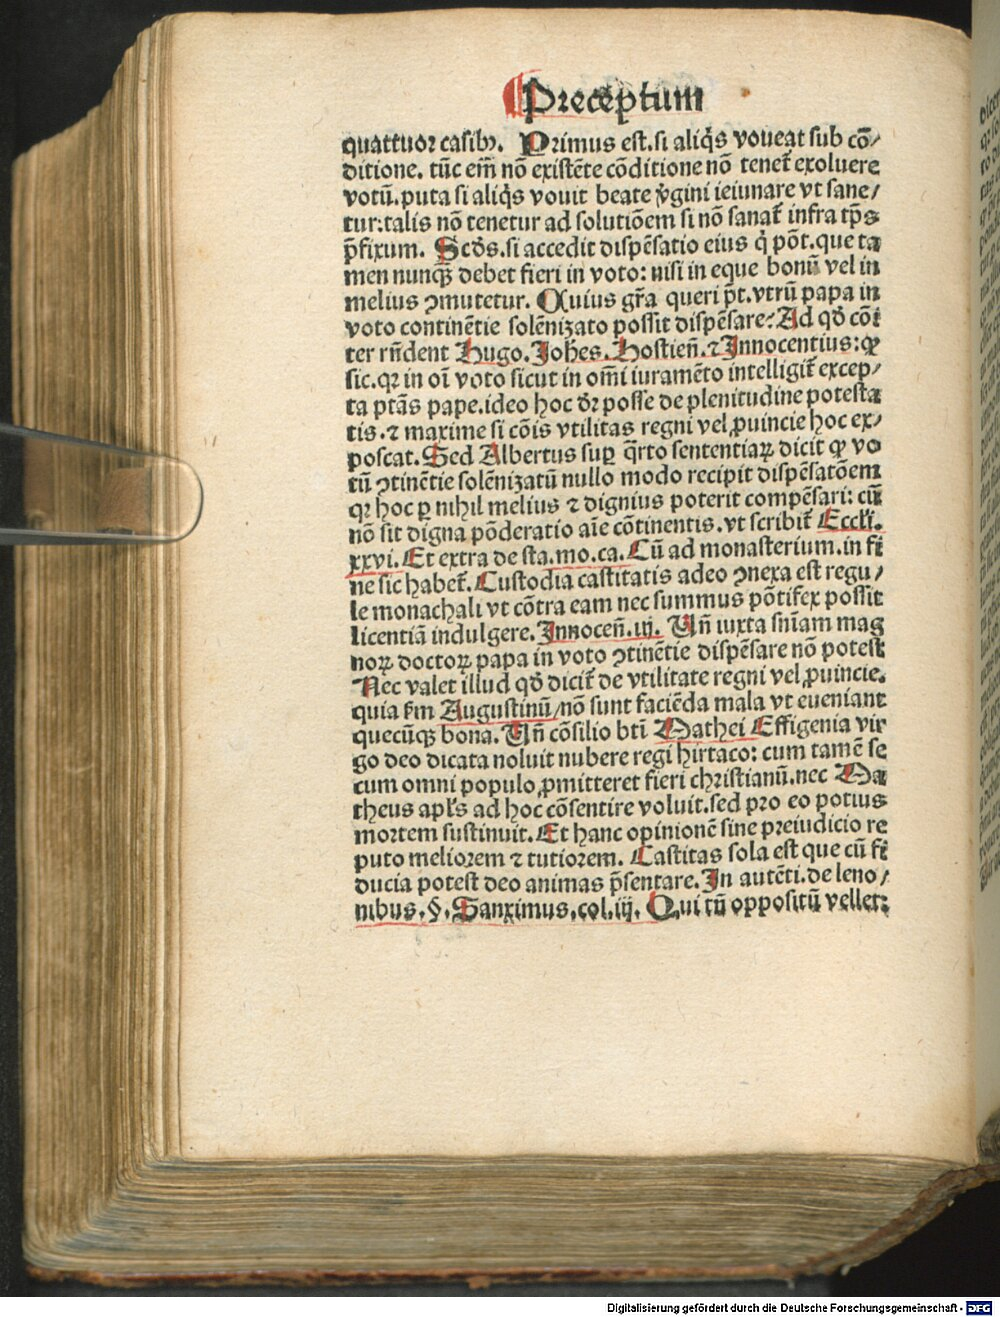 Preceptum
quattuor casibꝰ. Primus est.si aliq̈s voueat sub cõ/
ditione. tũc em̃ nõ existẽte cõditione nõ tenet̃ exoluere
votũ.puta si aliq̈s vouit beate v̈gini ieiunare vt sane/
tur:talis nõ tenetur ad solutiõem si nõ sanat̃ infra tp̃s
p̃fixum. Scd̃s.si accedit dispẽsatio eius q̇ põt.que ta
men nunqᷓ debet fieri in voto: nisi in eque bonũ vel in
melius ꝯmutetur. Cuius gr̃a queri p̃t.vtrũ papa in
voto continẽtie solẽnizato possit dispẽsare? Ad qd̃ cõi
ter rñdent Hugo.Joh̃es.Hostieñ.⁊ Innocentius: ꝙ
sic.qꝛ in oĩ voto sicut in om̃i iuramẽto intelligit̃ excep/
ta ptãs pape.ideo hoc dr̃ posse de plenitudine potesta
tis.⁊ maxime si cõis vtilitas regni vel ꝓuincie hoc ex/
poscat. Sed Albertus suꝑ q̈rto sententiaꝝ dicit ꝙ vo
tũ ꝯtinẽtie solẽnizatũ nullo modo recipit dispẽsatõem
qꝛ hoc ꝑ nihil melius ⁊ dignius poterit compẽsari: cũ
nõ sit digna põderatio aĩe cõtinentis.vt scribit̃ Eccłi.
xxvi. Et extra de sta.mo.ca.Cũ ad monasterium.in fi
ne sic habet̃. Custodia castitatis adeo ꝯnexa est regu/
le monachali vt cõtra eam nec summus põtifex possit
licentiã indulgere.Innoceñ.iij. Uñ iuxta sñiam mag
noꝝ doctoꝝ papa in voto ꝯtinẽtie dispẽsare nõ potest
Nec valet illud qd̃ dicit̃ de vtilitate regni vel ꝓuincie.
quia f̃m Augustinũ/nõ sunt faciẽda mala vt eueniant
quecũqꝫ bona. Uñ cõsilio bti̇ Mathei Effigenia vir
go deo dicata noluit nubere regi hirtaco: cum tamẽ se
cum omni populo ꝓmitteret fieri christianũ.nec Ma
theus apł's ad hoc cõsentire voluit.sed pro eo potius
mortem sustinuit. Et hanc opinionẽ sine preiudicio re
puto meliorem ⁊ tutiorem. Castitas sola est que cũ fi
ducia potest deo animas p̃sentare.In autẽti.de leno/
nibus.§.Sanximus.col.iij. Qui tñ oppositũ vellet:
Digitalisierung gefördert durch die Deutsche Forschungsgemeinschaft - DFG